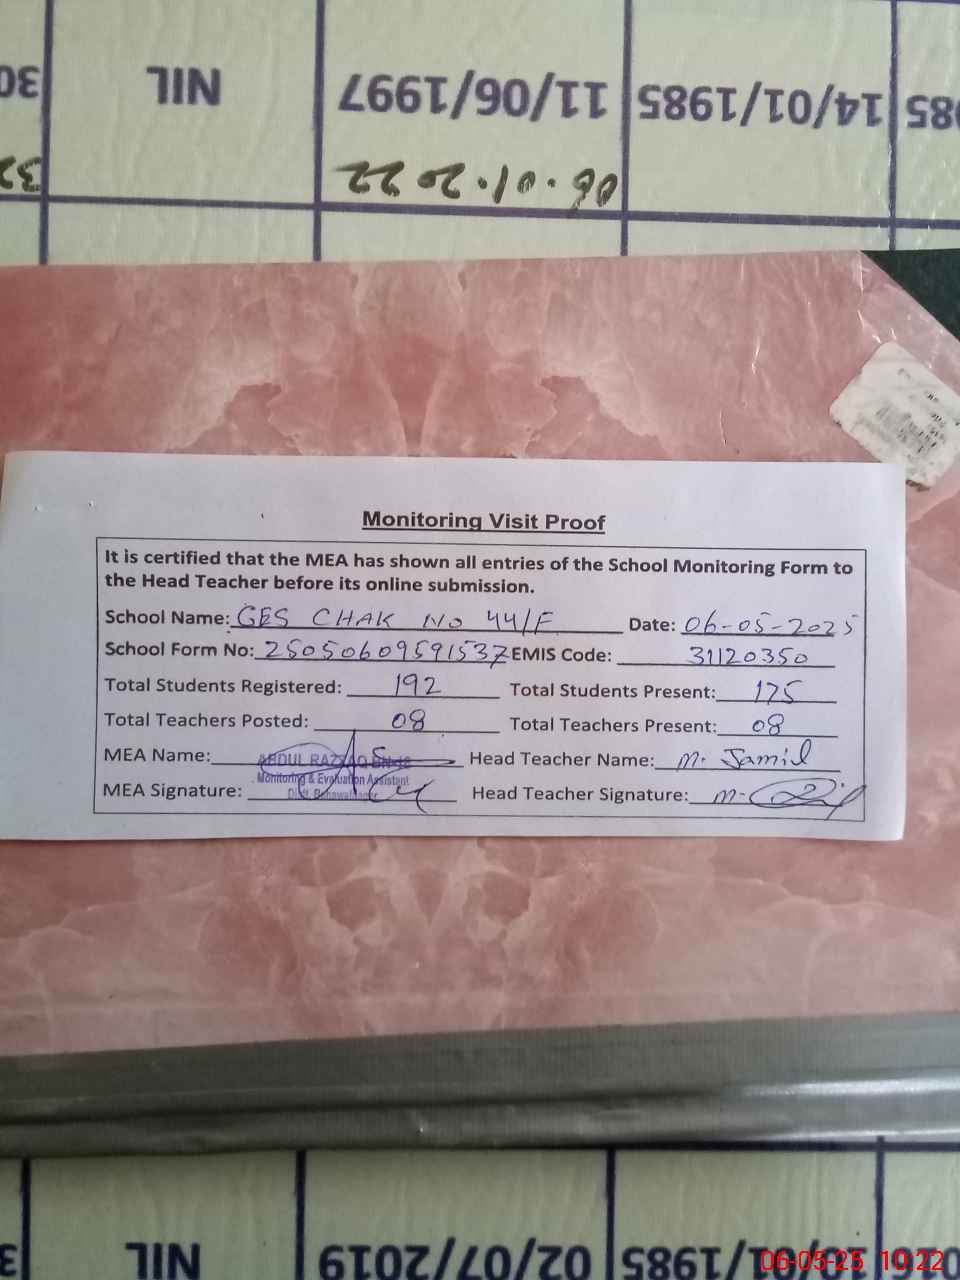 NIL
11/06/1997
14/01/1985
06.01.2022
Monitoring Visit Proof
It is certified that the MEA has shown all entries of the School Monitoring Form to
the Head Teacher before its online submission.
School Name: GES CHAK NO 44/F Date: 06-05-2025
School Form No: 25050609591537 EMIS Code: 31120350
Total Students Registered: 192 Total Students Present: 175
Total Teachers Posted: 08 Total Teachers Present: 08
MEA Name: ABDUL RAZZAQ Head Teacher Name: M. Jamil
Monitoring & Evaluation Assistant
MEA Signature: Distt. Bahawalnagar Head Teacher Signature:
NIL
02/07/2019
06-05-25 10:22